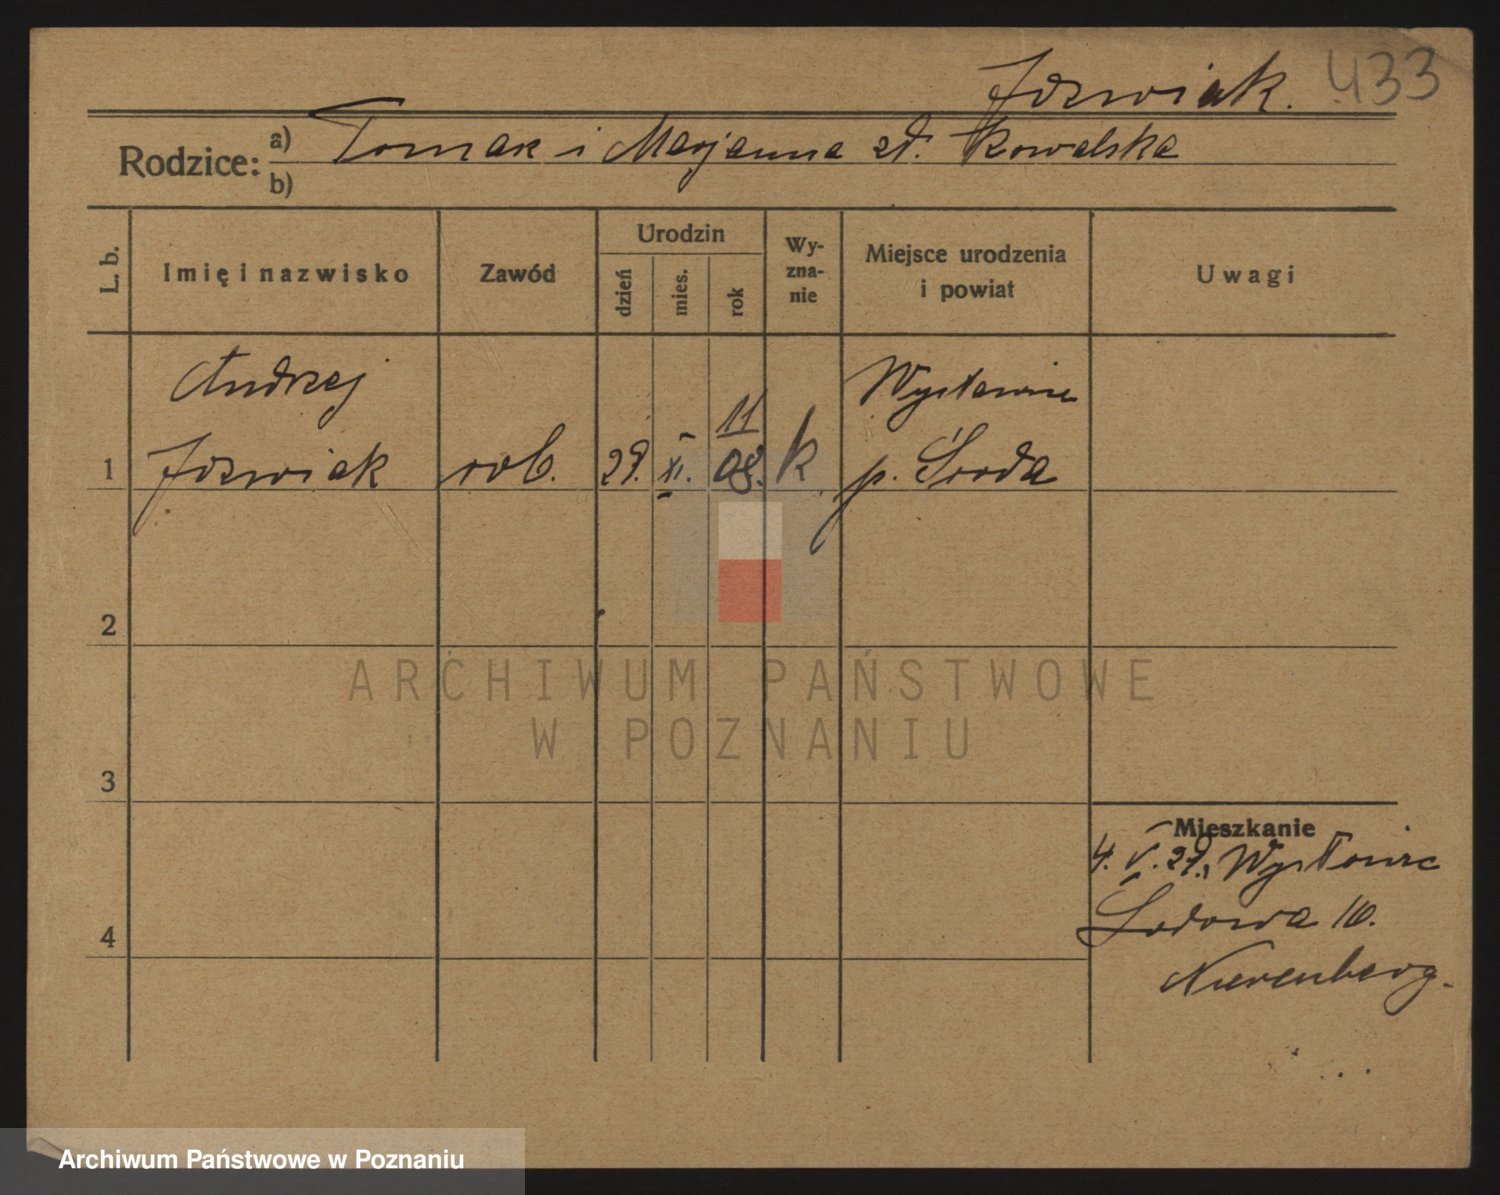 Jozwiak. 433
Rodzice: a) Tomasz i Marjanna zd. Kowalska
b)
L. b. Imię i nazwisko Zawód Urodzin dzień mies. rok Wyzna-nie Miejsce urodzenia i powiat Uwagi
Andrzej
11
1 Jozwiak rob. 29. XI. 08. k p. Środa
2
ARCHIWUM PAŃSTWOWE
W POZNANIU
3
Mieszkanie
4. V. 29.,
4 16.
Nierenberg.
Archiwum Państwowe w Poznaniu